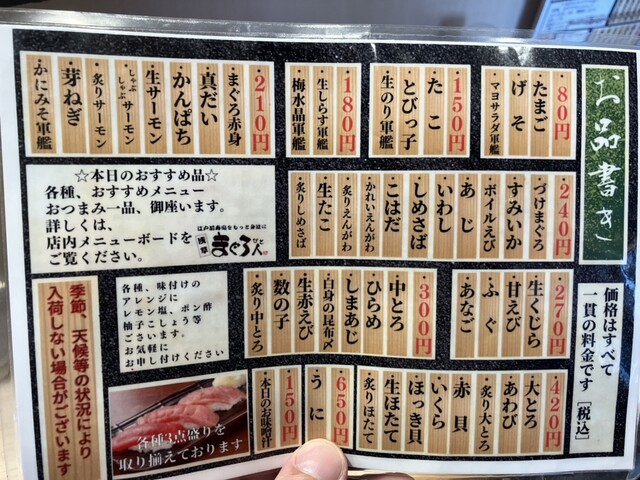 お品書き
80円
たまご
げそ
マヨサラダ軍艦
150円
たこ
とびっ子
生のり軍艦
180円
生しらす軍艦
梅水晶軍艦
210円
まぐろ赤身
真だい
かんぱち
生サーモン
しゃぶしゃぶサーモン
炙りサーモン
芽ねぎ
かにみそ軍艦
240円
づけまぐろ
すみいか
ボイルえび
あじ
いわし
しめさば
こはだ
かれいえんがわ
炙りえんがわ
生たこ
炙りしめさば
☆本日のおすすめ品☆
各種、おすすめメニュー
おつまみ一品、御座います。
詳しくは、
店内メニューボードを
ご覧ください。
江戸前寿司をもっと身近に
浅草
まぐろ人
びと
270円
生くじら
甘えび
ふぐ
あなご
300円
中とろ
ひらめ
しまあじ
白身の昆布〆
生赤えび
数の子
炙り中とろ
価格はすべて
一貫の料金です
[税込]
420円
大とろ
あわび
炙り大とろ
赤貝
いくら
ほっき貝
生ほたて
炙りほたて
650円
うに
150円
本日のお味噌汁
各種、味付けの
アレンジに
レモン塩、ポン酢
柚子こしょう等
ございます。
お気軽に
お申し付けください
季節、天候等の状況により
入荷しない場合がございます
各種3点盛りを
取り揃えております